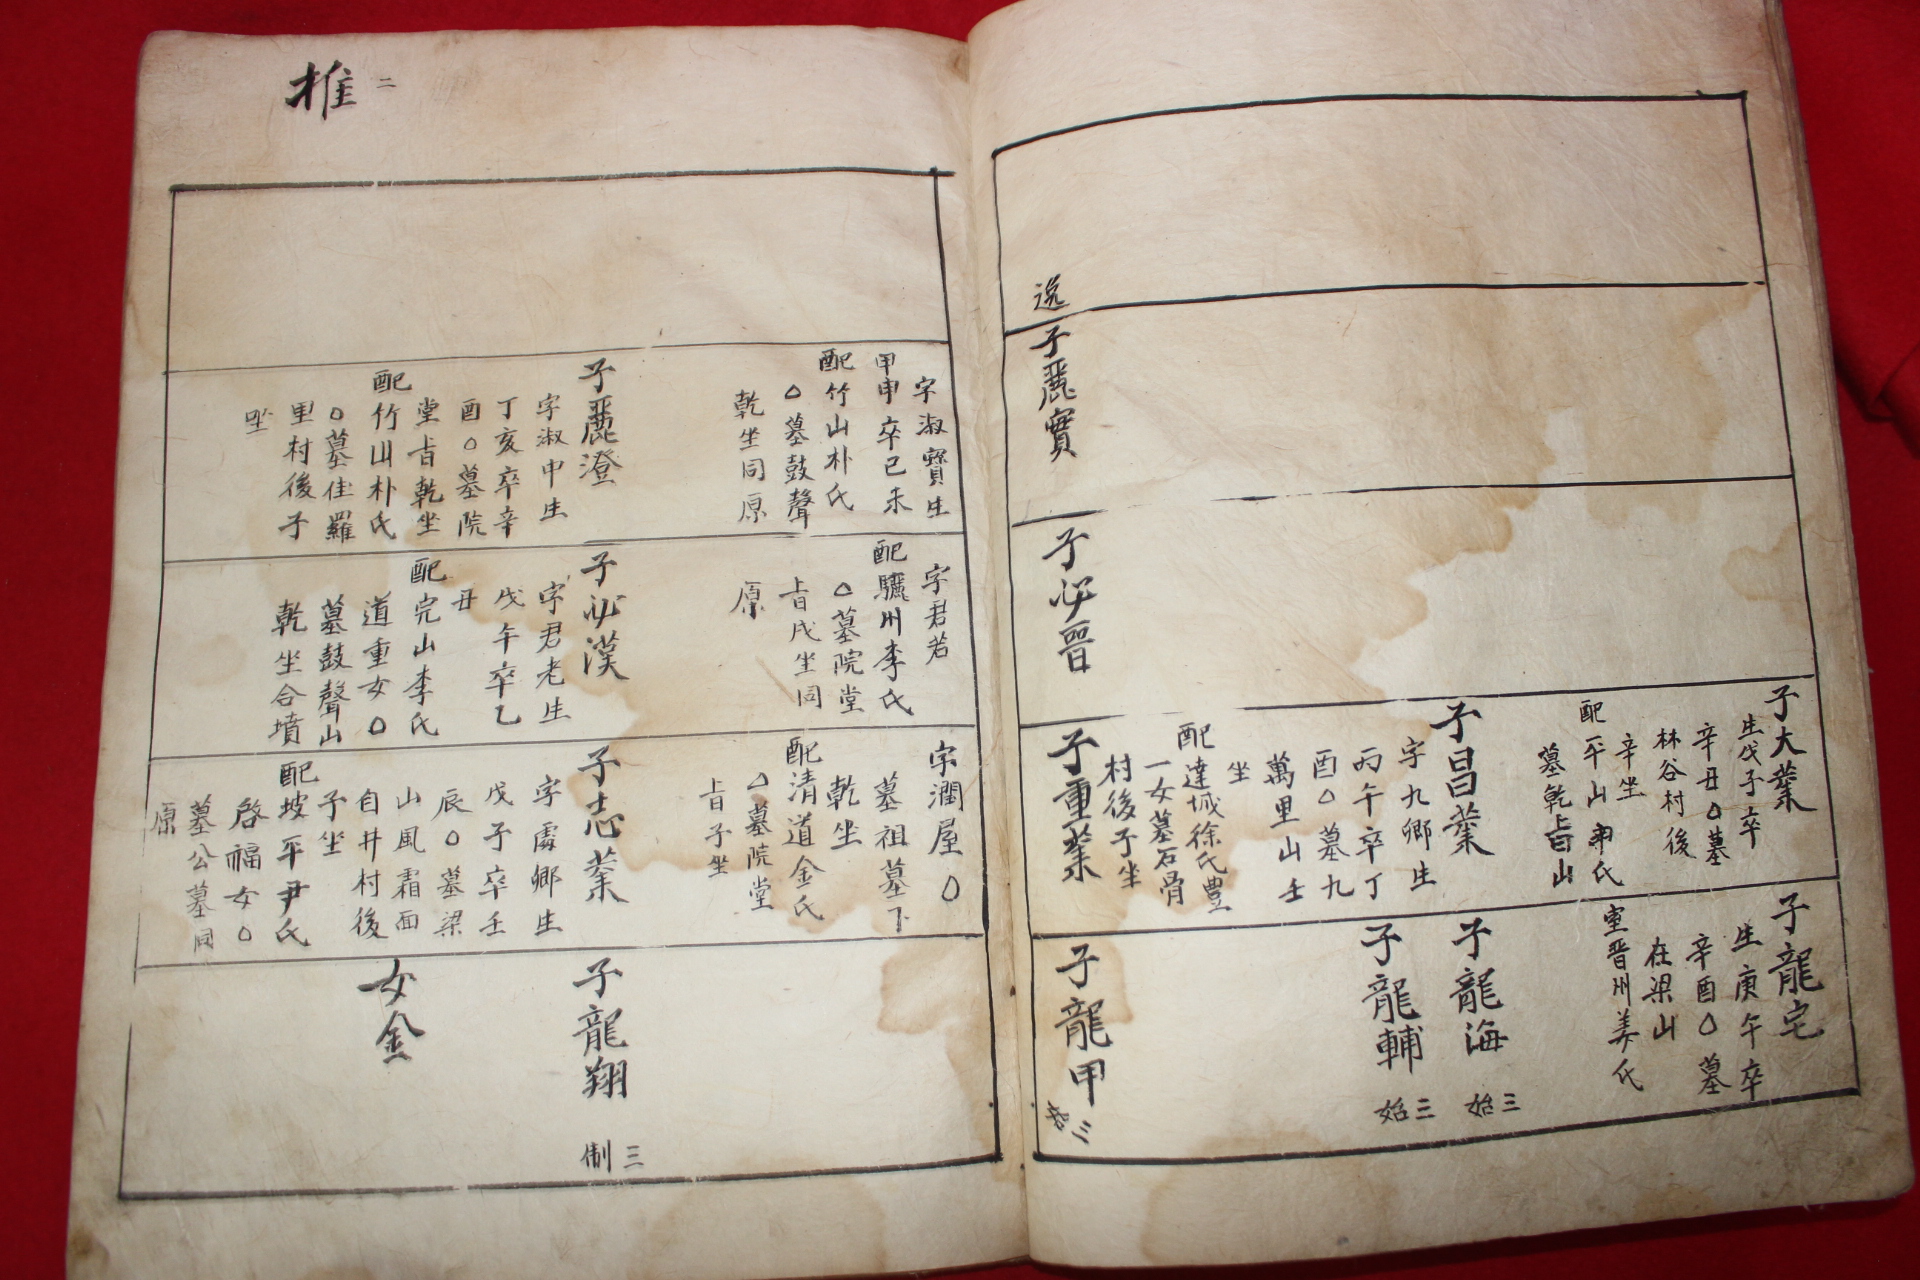 逸
子麗實
子必晉
子大業
生戊子卒
辛丑○墓
林谷村後
辛坐
配平山申氏
墓乾㫖山
子昌業
字九鄉生
丙午卒丁
酉○墓九
萬里山壬
坐
配達城徐氏豊
一女墓石骨
村後子坐
子重業
子龍宅
生庚午卒
辛酉○墓
在梁山
室晋州姜氏
子龍海
三始
子龍輔
三始
子龍甲
三
推 二
字淑寶生
甲申卒己未
配竹山朴氏
○墓鼓聲
乾坐同原
子麗澄
字淑中生
丁亥卒辛
酉○墓院
堂㫖乾坐
配竹山朴氏
○墓佳羅
里村後子
坐
字君若
配驪州李氏
○墓院堂
㫖戌坐同
原
子必漢
字君老生
戊午卒乙
丑
配完山李氏
道重女○
墓鼓聲山
乾坐合墳
字潤屋○
墓祖墓下
乾坐
配清道金氏
○墓院堂
㫖子坐
子志業
字處鄉生
戊子卒壬
辰○墓梁
山風霜面
自井村後
子坐
配坡平尹氏
啓福女○
墓公墓同
原
子龍翔
三制
女金